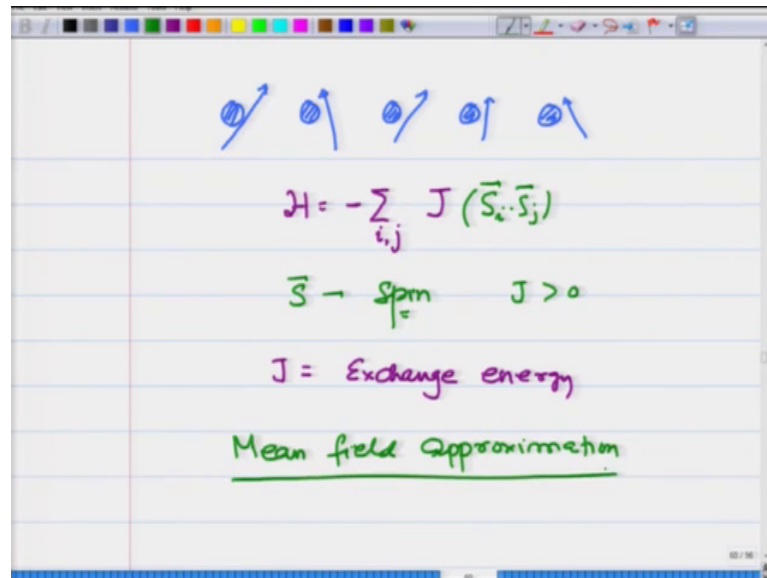 H = - Σ J (S̄ᵢ · S̄ⱼ)
i,j
S̄ → Spin J > 0
J = Exchange energy
Mean field approximation
60 / 96